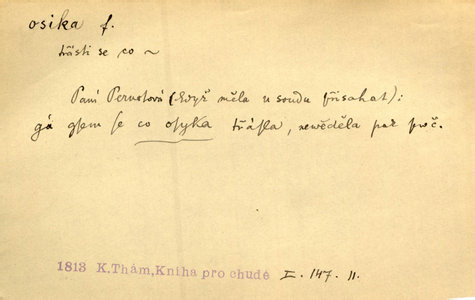 osika f.
třásti se co ~
Paní Pernotová (když měla u soudu přisahat):
gá gsem se co osyka třásla, newěděla pak proč.
1813 K.Thám,Kniha pro chudé I. 147. 11.